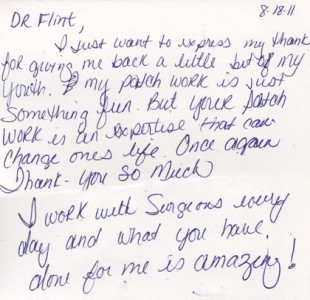 8-18-11
DR Flint,
I Just want to express my thank
for giving me back a little bit of my
youth. my patch work is just
something fun. But your patch
work is an expertise that can
change ones life. Once again
Thank-you so much
I work with Surgeons every
day and what you have
done for me is amazing!